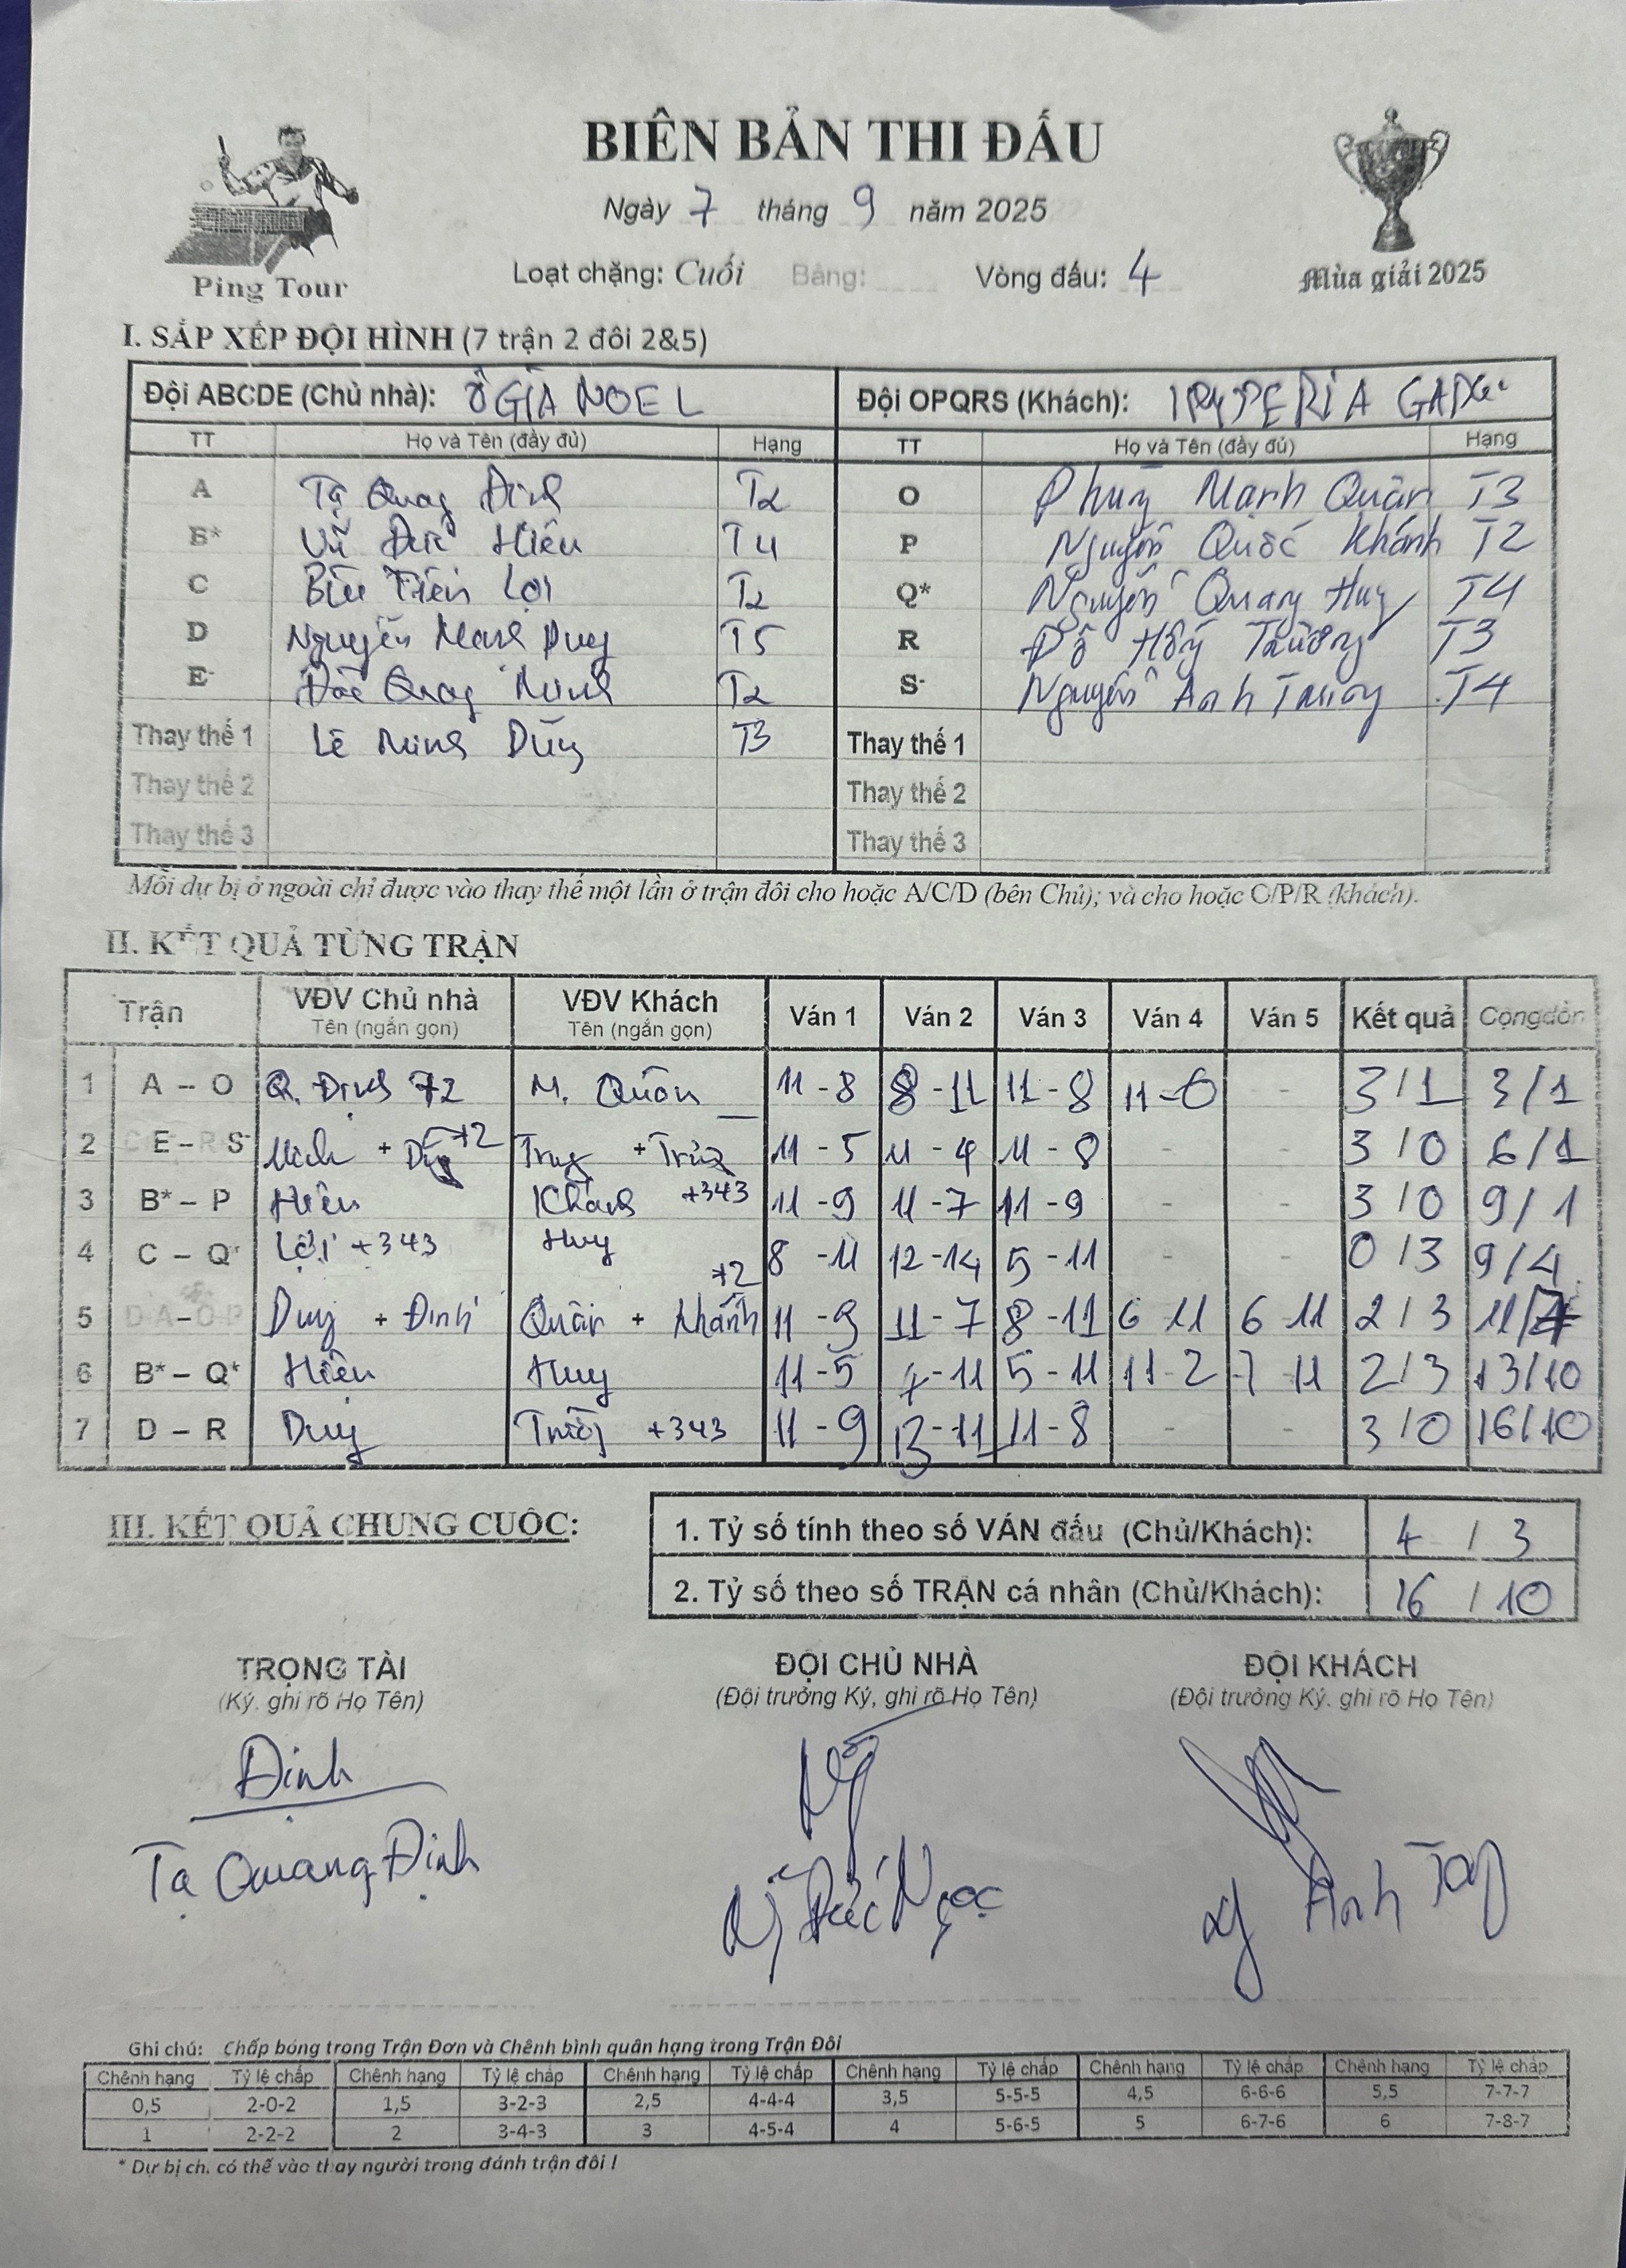 BIÊN BẢN THI ĐẤU
Ngày 7 tháng 9 năm 2025
Loạt chặng: Cuối Bảng: Vòng đấu: 4
Ping Tour
Mùa giải 2025
I. SẮP XẾP ĐỘI HÌNH (7 trận 2 đôi 2&5)
Đội ABCDE (Chủ nhà): ÔGIÀ NOEL Đội OPQRS (Khách): IMPERIA
TT Họ và Tên (đầy đủ) Hạng TT Họ và Tên (đầy đủ) Hạng
A Tạ Quang Định T2 O Mạnh Quân T3
B* Vũ Đức Hiếu T4 P Nguyễn Quốc Khánh T2
C Bùi Tiến Lợi T2 Q* Nguyễn Quang Huy T4
D Nguyễn Mạnh Duy T5 R Đỗ Hồng Trường T3
E- Quang Minh T2 S- Nguyễn Anh T4
Thay thế 1 Lê Minh Dũng T3 Thay thế 1
Thay thế 2 Thay thế 2
Thay thế 3 Thay thế 3
Mỗi dự bị ở ngoài chỉ được vào thay thế một lần ở trận đôi cho hoặc A/C/D (bên Chủ); và cho hoặc O/P/R (khách).
II. KẾT QUẢ TỪNG TRẬN
Trận VĐV Chủ nhà VĐV Khách Ván 1 Ván 2 Ván 3 Ván 4 Ván 5 Kết quả Cộng dồn
Tên (ngắn gọn) Tên (ngắn gọn)
1 A – O Q. Định +2 M. Quân 11 - 8 8 - 11 11 - 8 11 - 6 - 3 / 1 3 / 1
2 E – S- Minh + Dũng +2 11 - 5 11 - 4 11 - 8 - - 3 / 0 6 / 1
3 B* – P Hiếu Khánh +343 11 - 9 11 - 7 11 - 9 - - 3 / 0 9 / 1
4 C – Q* Lợi +343 Huy 8 - 11 12 - 14 5 - 11 - - 0 / 3 9 / 4
5 Duy + Định Quân + Khánh +2 11 - 9 11 - 7 8 - 11 6 11 6 11 2 / 3 11 / 7
6 B* – Q* Hiếu Huy 11 - 5 7 - 11 5 - 11 11 - 2 7 11 2 / 3 13 / 10
7 D – R Duy Trường +343 11 - 9 13 - 11 11 - 8 - - 3 / 0 16 / 10
III. KẾT QUẢ CHUNG CUỘC:
1. Tỷ số tính theo số VÁN đấu (Chủ/Khách): 4 / 3
2. Tỷ số theo số TRẬN cá nhân (Chủ/Khách): 16 / 10
TRỌNG TÀI ĐỘI CHỦ NHÀ ĐỘI KHÁCH
(Ký, ghi rõ Họ Tên) (Đội trưởng Ký, ghi rõ Họ Tên) (Đội trưởng Ký, ghi rõ Họ Tên)
Định
Tạ Quang Định Đức Ngọc Anh
Ghi chú: Chấp bóng trong Trận Đơn và Chênh bình quân hạng trong Trận Đôi
Chênh hạng Tỷ lệ chấp Chênh hạng Tỷ lệ chấp Chênh hạng Tỷ lệ chấp Chênh hạng Tỷ lệ chấp Chênh hạng Tỷ lệ chấp Chênh hạng Tỷ lệ chấp
0,5 2-0-2 1,5 3-2-3 2,5 4-4-4 3,5 5-5-5 4,5 6-6-6 5,5 7-7-7
1 2-2-2 2 3-4-3 3 4-5-4 4 5-6-5 5 6-7-6 6 7-8-7
* Dự bị ch. có thể vào thay người trong đánh trận đôi !